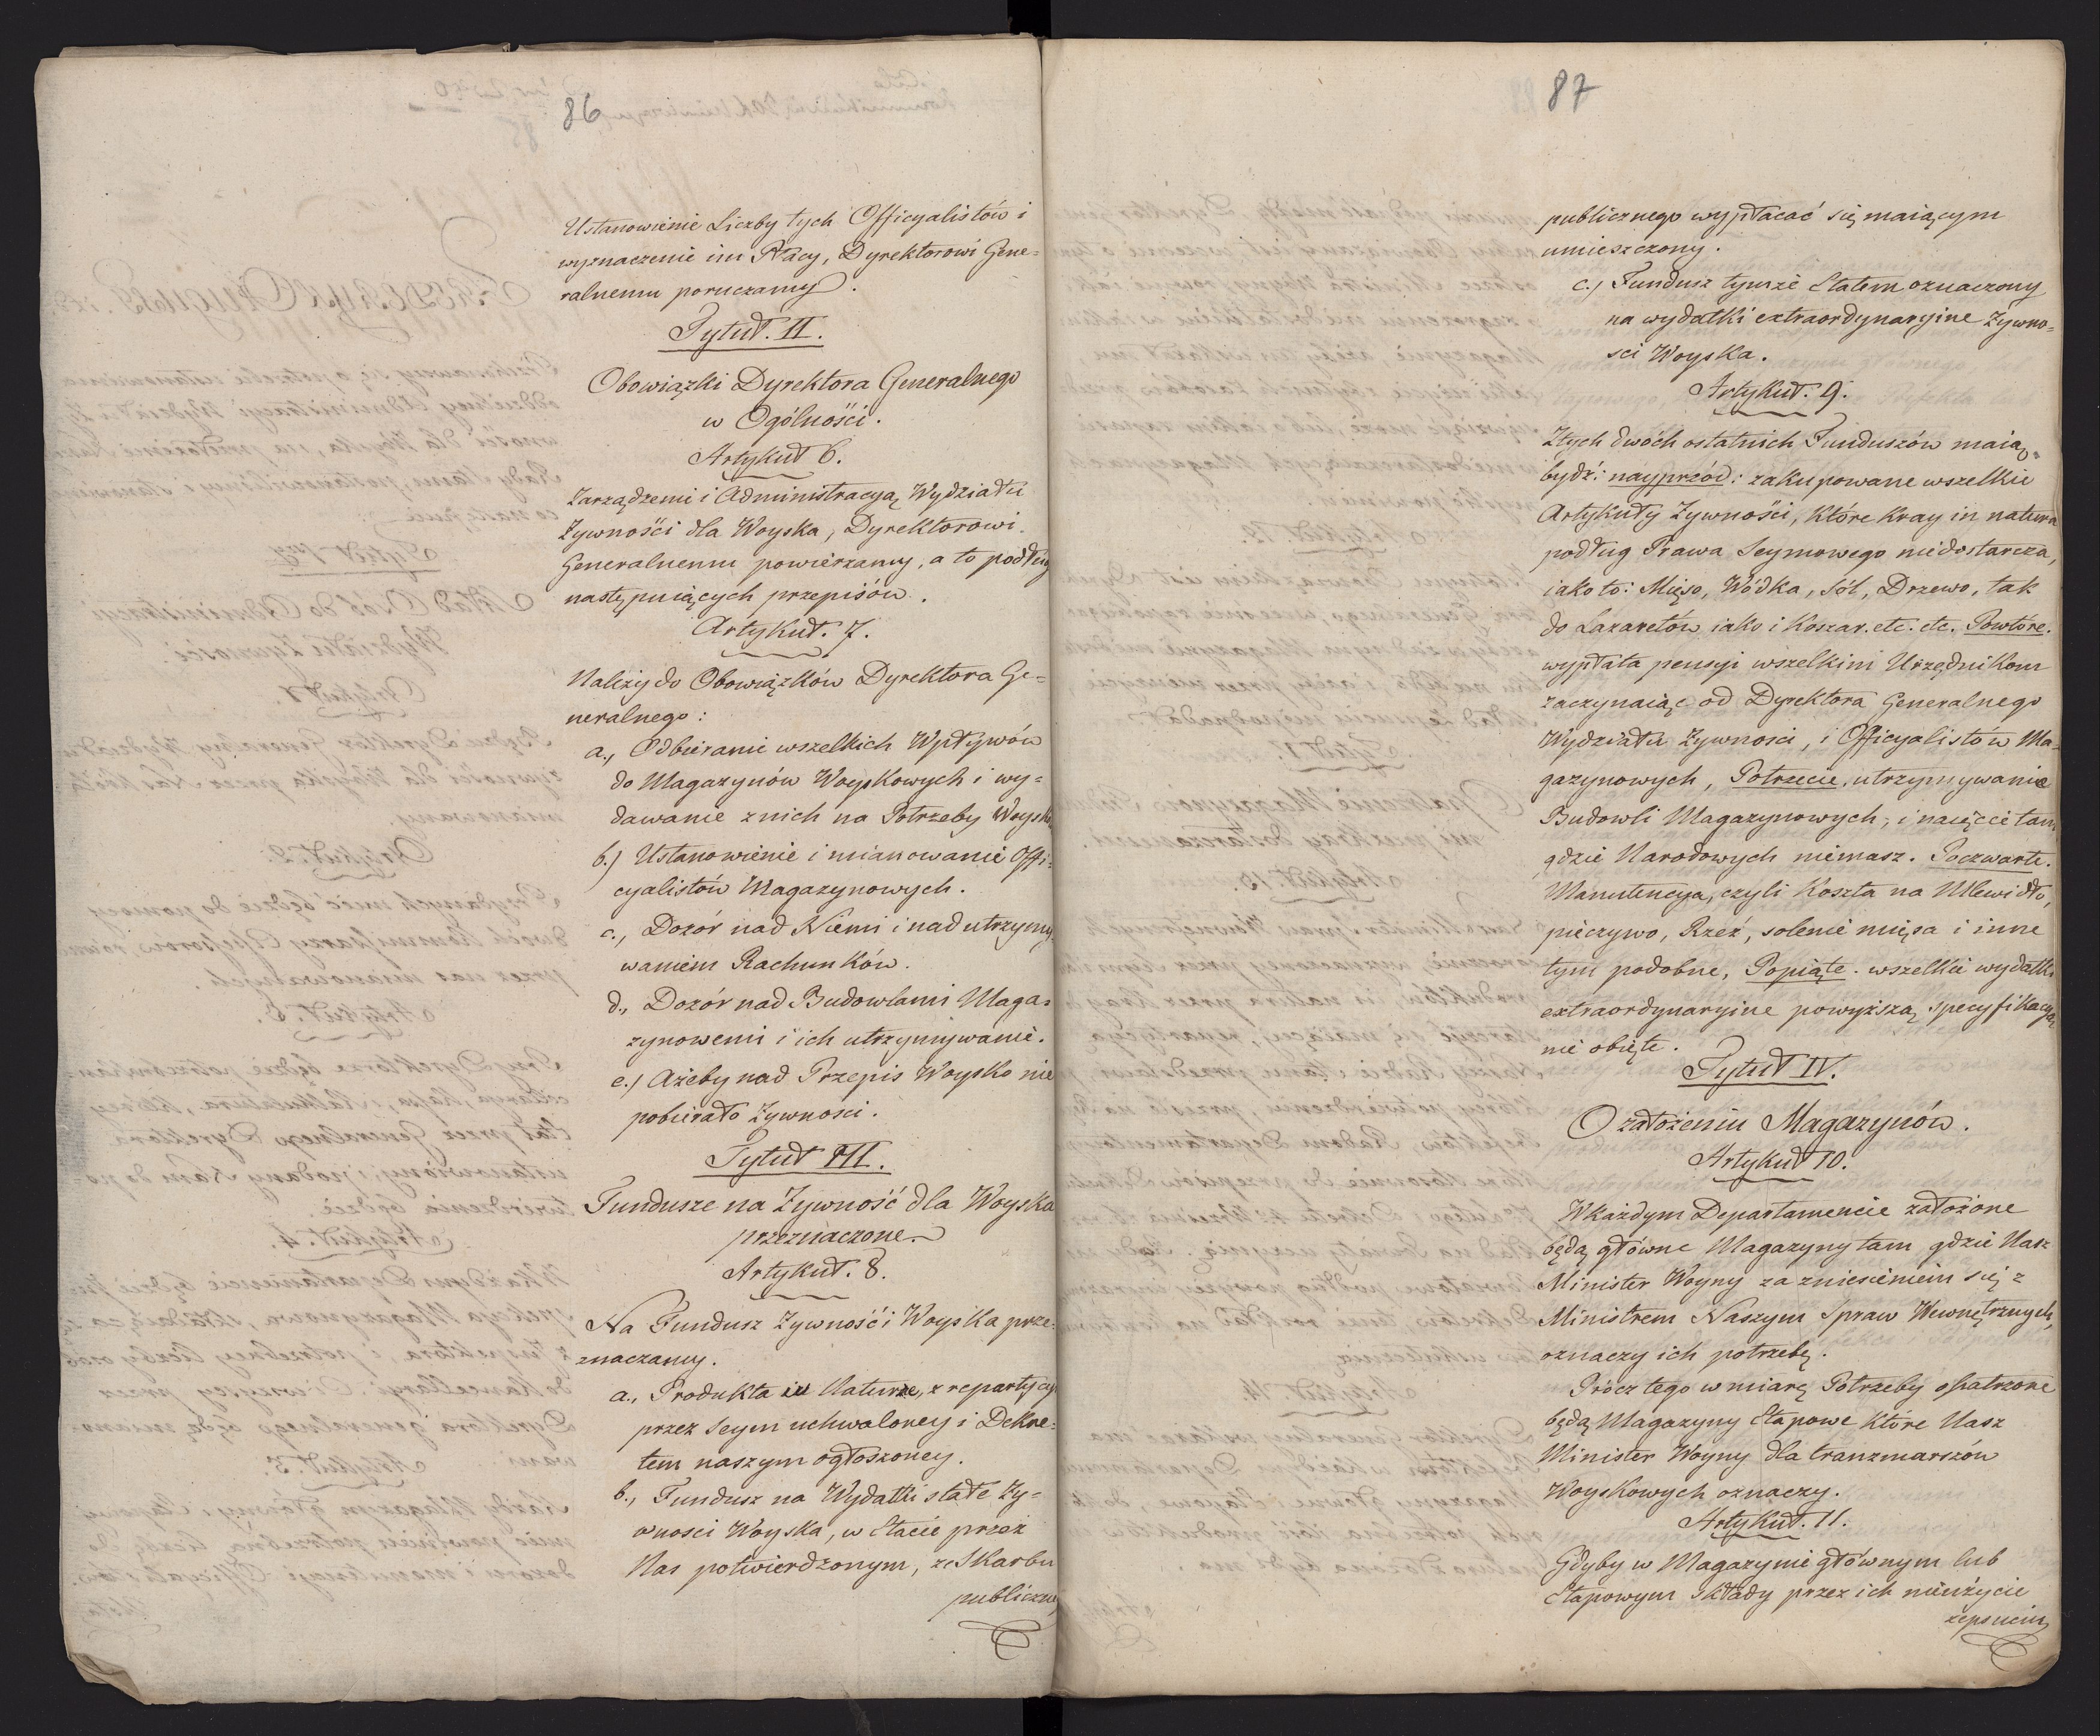 86
Ustanowienie Liczby tych Officyalistów i
wyznaczenie im Płacy, Dyrektorowi Gene=
ralnemu poruczamy.
Tytuł. II.
Obowiązki Dyrektora Generalnego
w Ogólności.
Artykuł 6.
Zarządzenie i Administracyą Wydziału
Żywności dla Woyska, Dyrektorowi
Generalnemu powierzamy, a to podług
następuiących przepisów.
Artykuł. 7.
Należy do Obowiązków Dyrektora Ge=
neralnego:
a., Odbieranie wszelkich Wpływów
do Magazynów Woyskowych i wy=
dawanie z nich na Potrzeby Woyska
b.) Ustanowienie i mianowanie Offi=
cyalistów Magazynowych.
c., Dozór nad Niemi i nad utrzymy=
waniem Rachunków.
d., Dozór nad Budowlami Maga=
zynowemi i ich utrzymywanie.
e.) Ażeby nad Przepis Woysko nie
pobierało Żywności.
Tytuł III.
Fundusze na Żywność dla Woyska
przeznaczone.
Artykuł. 8.
Na Fundusz Żywności Woyska prze=
znaczamy.
a., Produkta in Naturze, z repartycyi
przez Seym uchwaloney i Dekre=
tem naszym ogłoszoney.
b., Fundusz na Wydatki stałe Ży=
wności Woyska, w Etacie przez
Nas potwierdzonym, ze Skarbu
publiczne
87
publicznego wypłacać się maiącym
umieszczony.
c.) Fundusz tymże Etatem oznaczony
na wydatki extraordynaryine Żywno=
ści Woyska.
Artykuł. 9.
Z tych dwóch ostatnich Funduszów maią
bydź: nayprzód: zakupowane wszelkie
Artykuły Żywności, które Kray in natura
podług Prawa Seymowego niedostarcza,
iako to: Mięso, Wódka, Sól, Drzewo, tak
do Lazaretów iako i Koszar. etc. etc. Powtóre.
wypłata pensyi wszelkim Urzędnikom
zaczynaiąc od Dyrektora Generalnego
Wydziału Żywności, i Officyalistów Ma=
gazynowych, Potrzecie, utrzymywanie
Budowli Magazynowych, i naięcie tam
gdzie Narodowych niemasz. Poczwarte.
Manutencya, czyli Koszta na Mlewidło,
pieczywo, Rzeź, solenie mięsa i inne
tym podobne, Popiąte. wszelkie wydatki
extraordynaryine powyższą specyfikacyą
nie obięte.
Tytuł IV.
O założeniu Magazynów.
Artykuł 10.
W każdym Departamencie założone
będą główne Magazyny tam gdzie Nasz
Minister Woyny za zniesieniem się z
Ministrem Naszym Spraw Wewnętrznych,
oznaczy ich potrzebę.
Prócz tego w miarę Potrzeby opatrzone
będą Magazyny Etapowe które Nasz
Minister Woyny dla tranzmarszów
Woyskowych oznaczy.
Artykuł. 11.
Gdyby w Magazynie głównym lub
Etapowym Składy przez ich nieużycie
zepsuciu